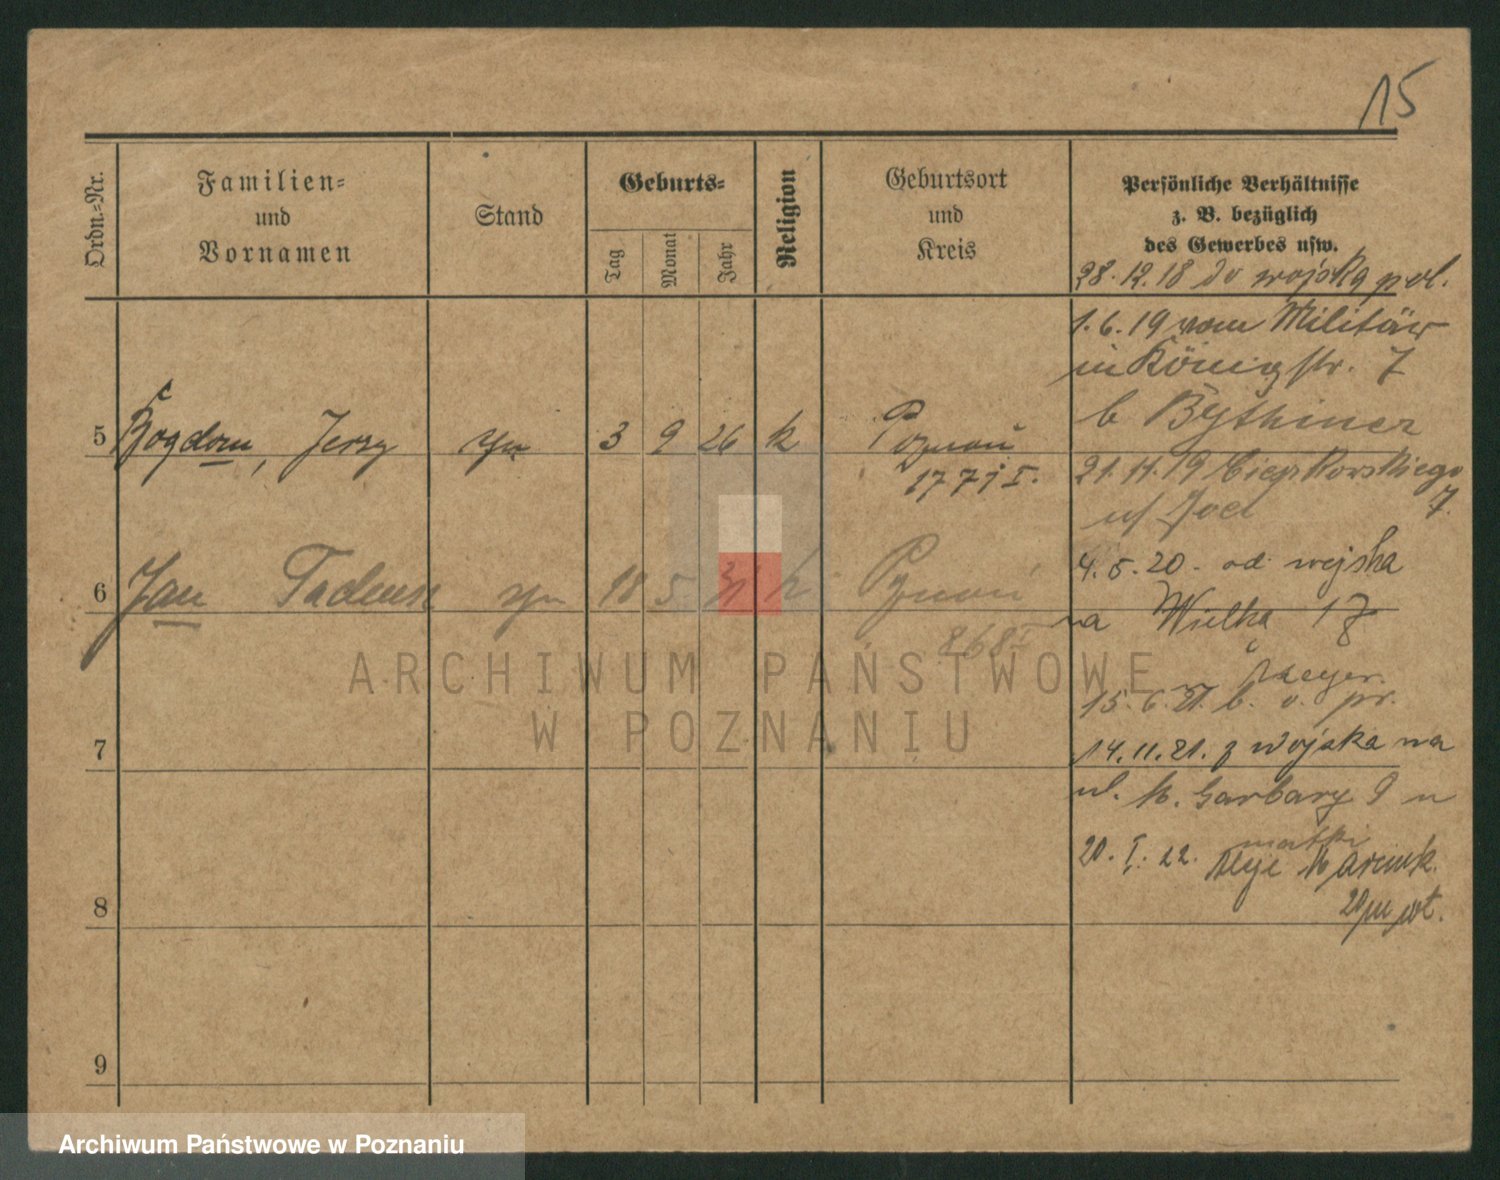 15
Ordn.=Nr.
Familien=
und
Vornamen
Stand
Geburts=
Tag
Monat
Jahr
Religion
Geburtsort
und
Kreis
Persönliche Verhältnisse
z. B. bezüglich
des Gewerbes usw.
28.12.18 do wojska pol.
1.6.19 vom Militär
in Königstr. 7
b Bythiner
5 Bogdan, Jerzy syn 3 9 26 k Poznań
1771 I.
21.11.19 Cieszkowskiego
7.
4.5.20. od wojska
6 Jan Tadeusz syn 18 5 31 k Poznań
868 I
na Wielka 17
Meyer.
15.6.21. b. v. pr.
14.11.21. z wojska na
7
ul. W. Garbary 9 u
matki
20.I.22. Aleje Marcink.
20
8
9
ARCHIWUM PAŃSTWOWE
W POZNANIU
Archiwum Państwowe w Poznaniu